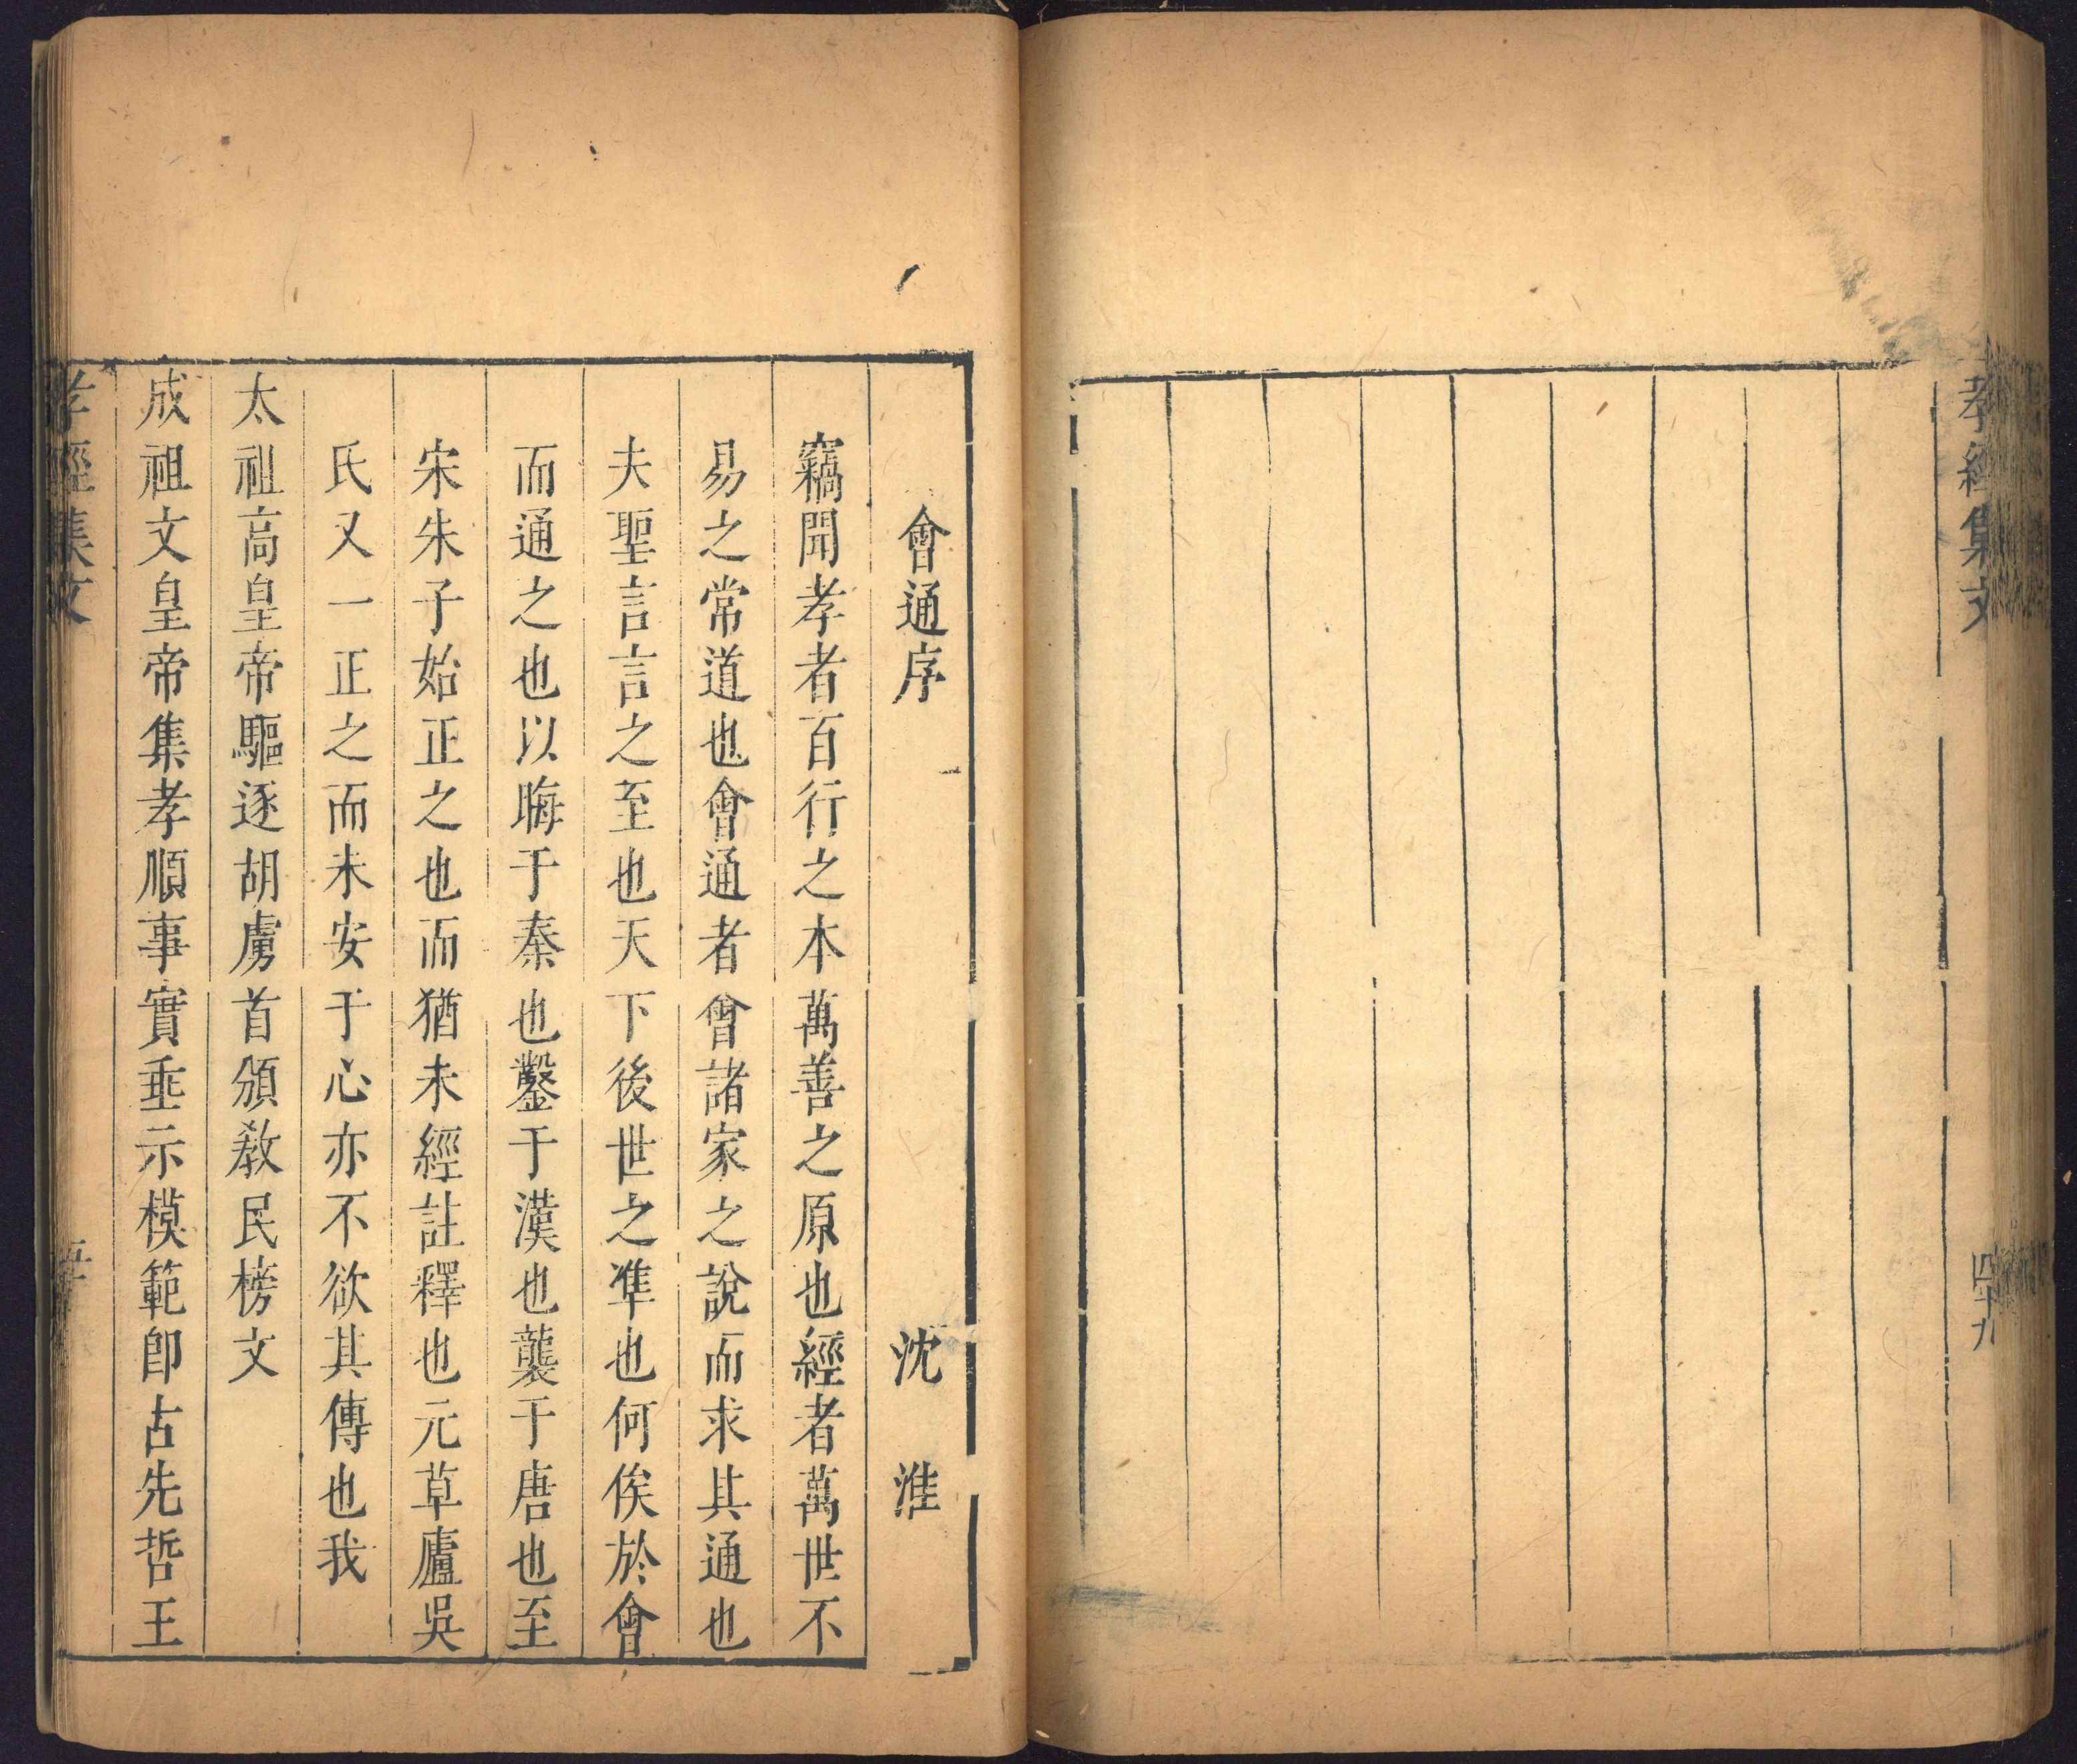 孝經集文
四十九
會通序 沈淮
竊聞孝者百行之本萬善之原也經者萬世不
易之常道也會通者會諸家之說而求其通也
夫聖言言之至也天下後世之準也何俟於會
而通之也以晦于秦也鑿于漢也襲于唐也至
宋朱子始正之也而猶未經註釋也元草廬吳
氏又一正之而未安于心亦不欲其傳也我
太祖高皇帝驅逐胡虜首頒敎民榜文
成祖文皇帝集孝順事實垂示模範卽古先哲王
孝經集文
五十